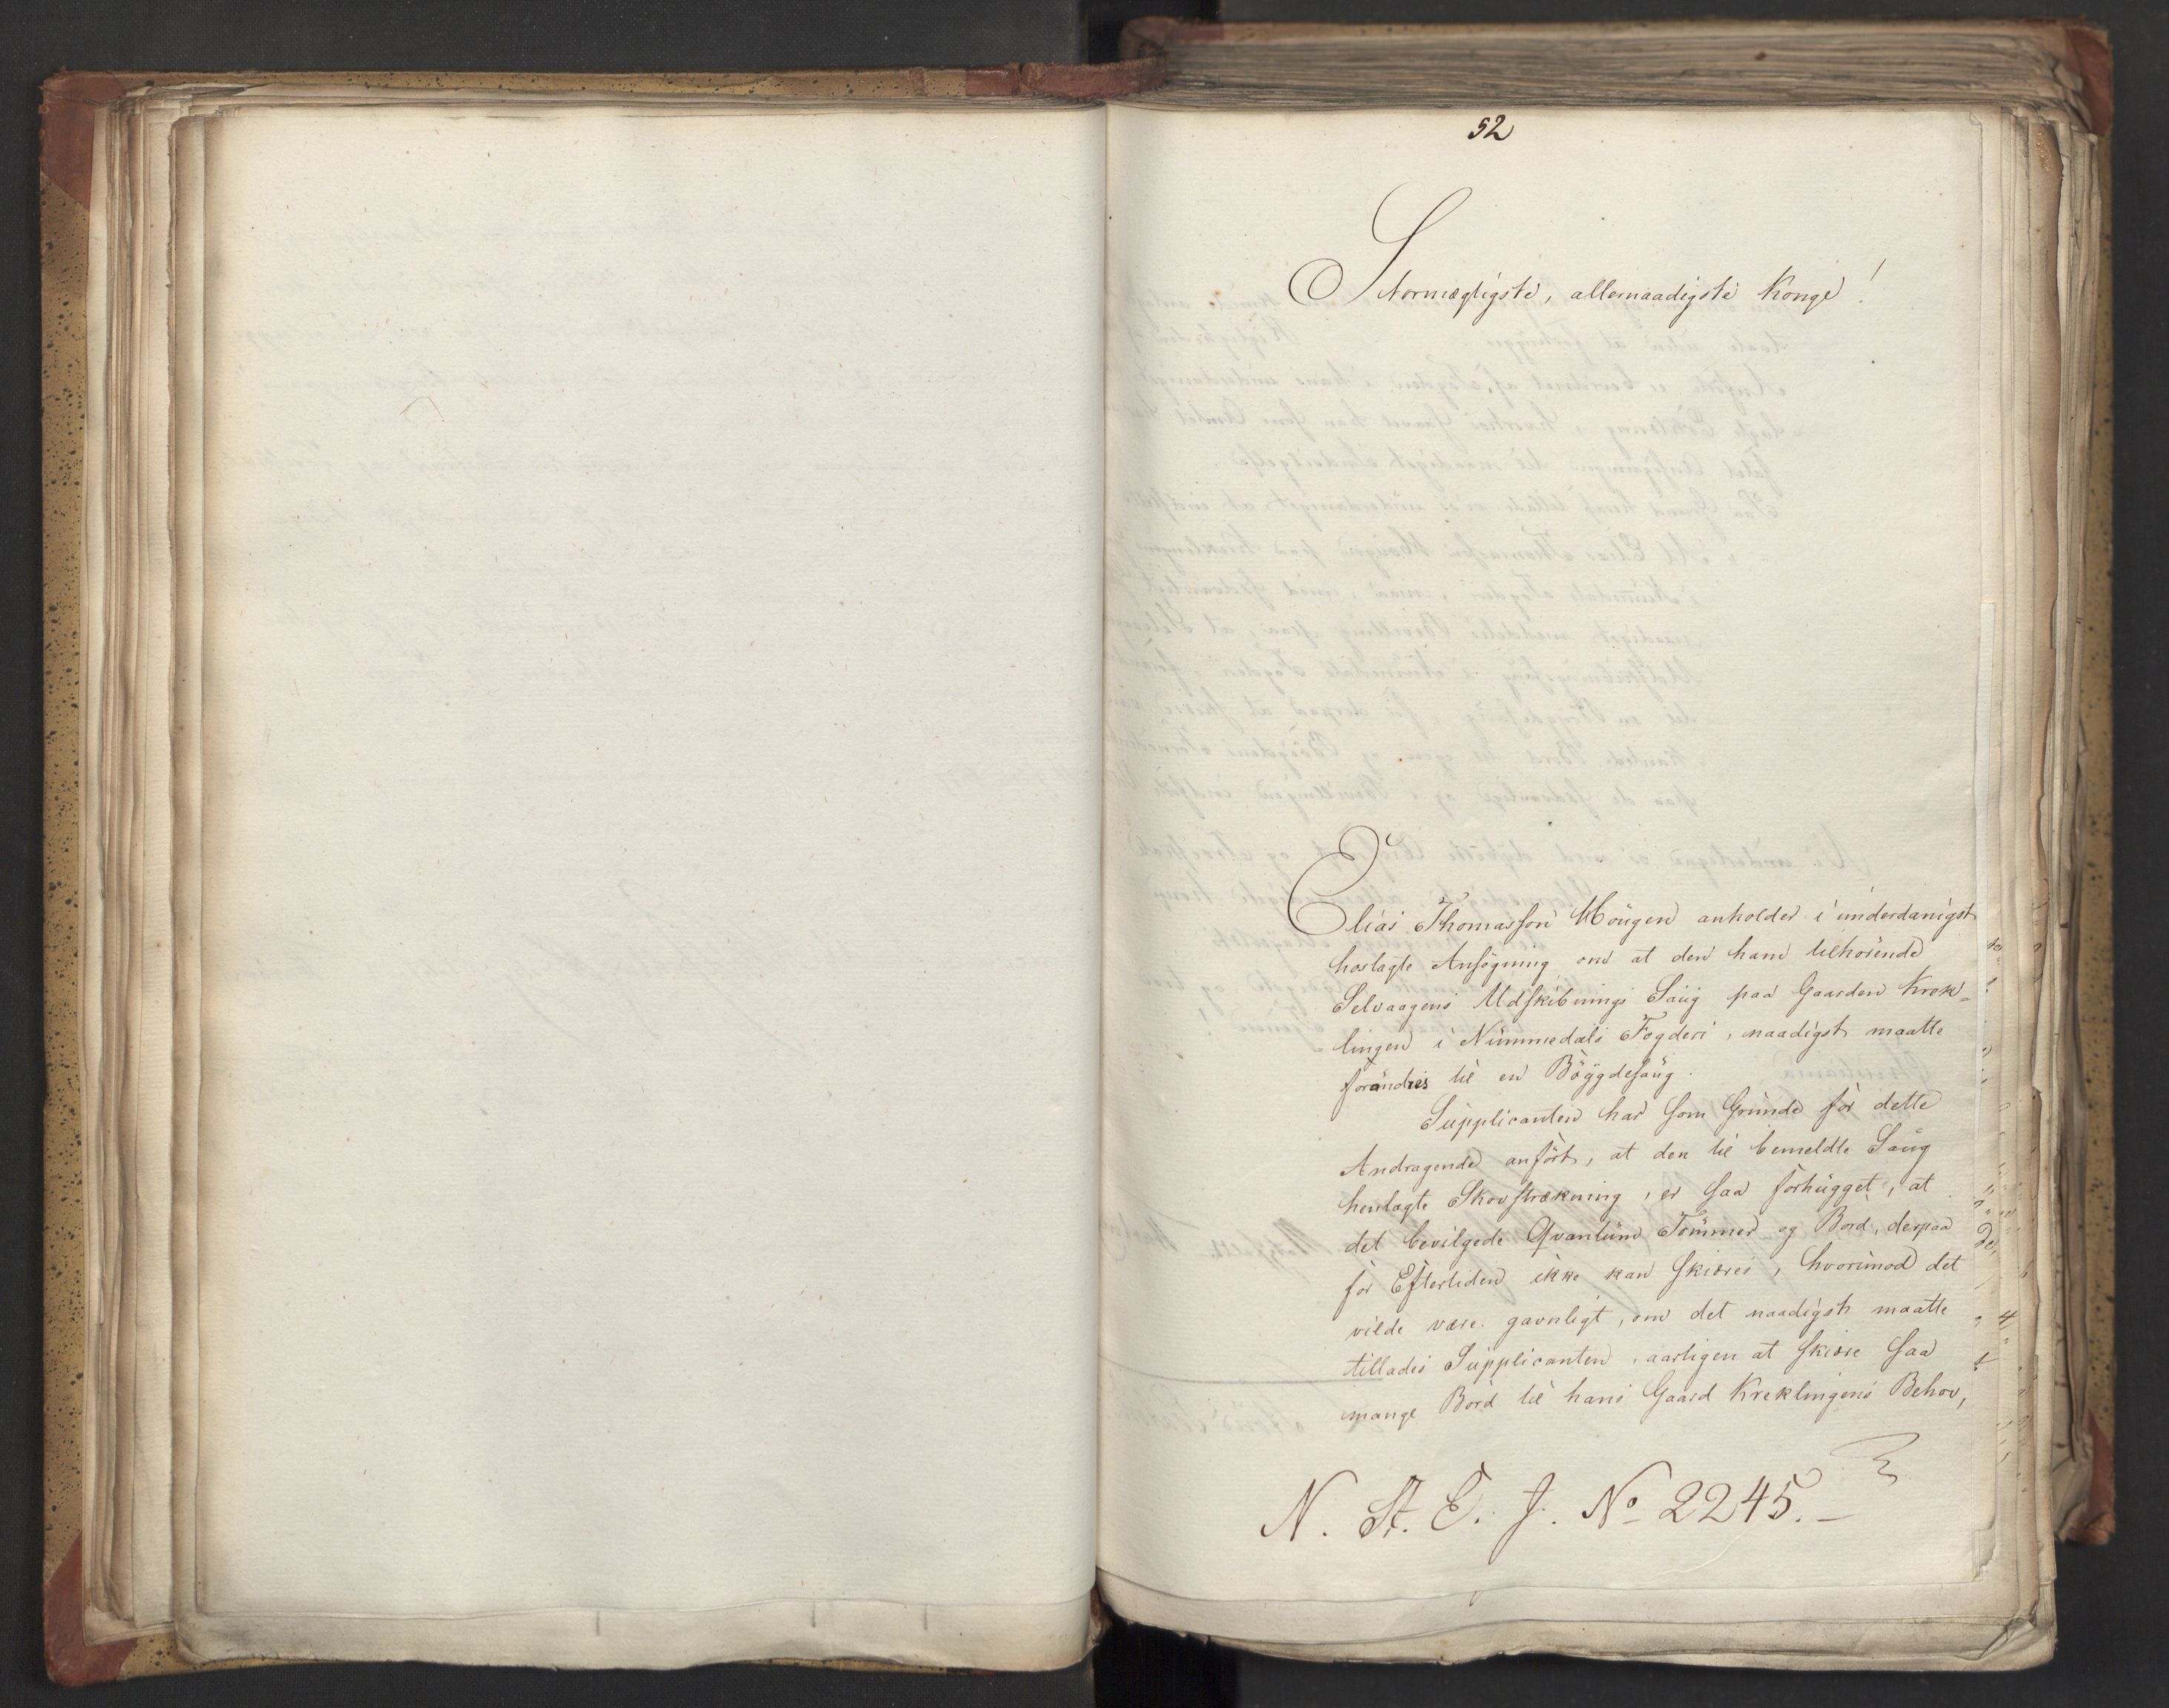 52
Stormægtigste, allernaadigste Konge!
Elias Thomassøn Hougen anholder i underdanigst
hoslagte Ansøgning om at den ham tilhørende
Selvaagens Udskibnings Saug paa Gaarden Krek-
lingen i Nummedals Fogderi, naadigst maatte
forandres til en Bøygdesaug.
Supplicanten har som Grunde for dette
Andragende anført, at den til bemeldte Saug
henlagte Skovstrækning, er saa forhugget, at
det bevilgede Qvantum Tømmer og Bord, derpaa
for Eftertiden ikke kan skiæres, hvorimod det
vilde være gavnligt, om det naadigst maatte
tillades Supplicanten, aarligen at skiære saa
mange Bord til hans Gaard Kreklingens Behov,
N. St. E. J. No 2245.-